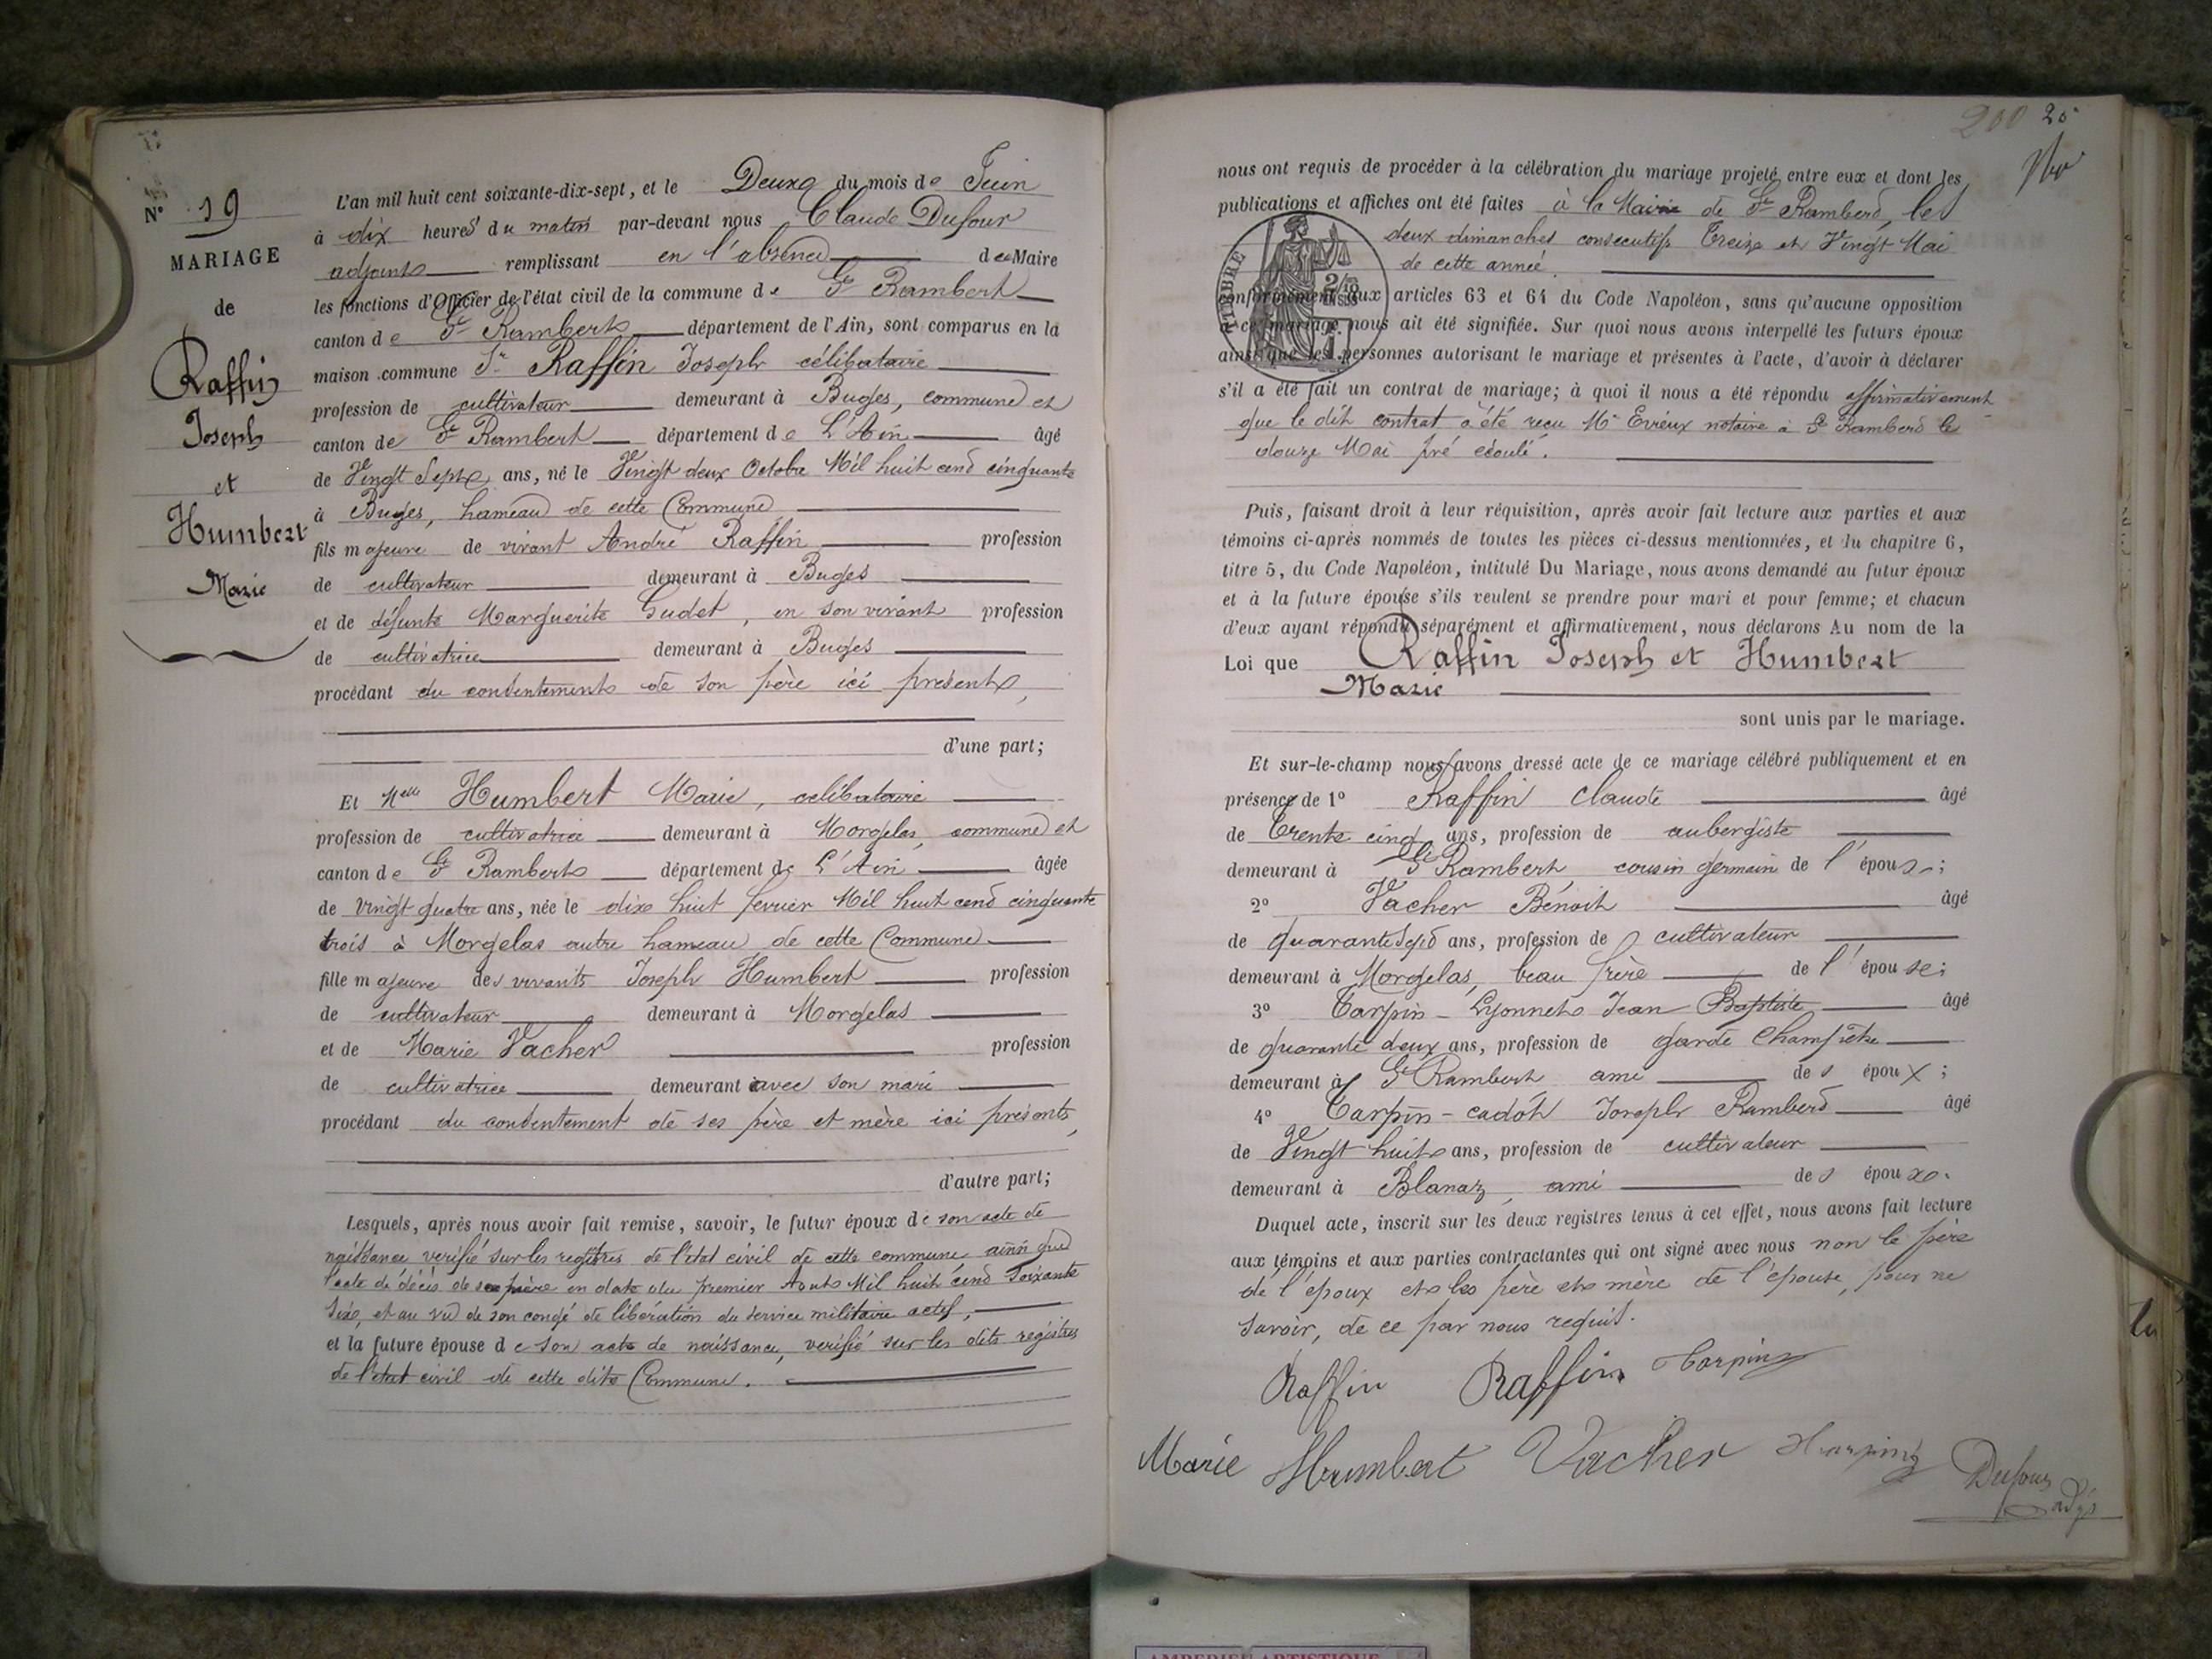 N° 19
MARIAGE
de
Raffin
Joseph
et
Humbert
Marie
L'an mil huit cent soixante-dix-sept, et le Deux du mois de Juin
à dix heures du matin par-devant nous Claude Dufour
adjoint remplissant en l'absence du Maire
les fonctions d'Officier de l'état civil de la commune de St Rambert
canton de St Rambert département de l'Ain, sont comparus en la
maison commune Sr Raffin Joseph célibataire
profession de cultivateur demeurant à Buges, commune et
canton de St Rambert département de L'Ain âgé
de Vingt Sept ans, né le Vingt deux Octobre Mil huit cent cinquante
à Buges, hameau de cette Commune
fils majeur de vivant André Raffin profession
de cultivateur demeurant à Buges
et de défunte Marguerite Gudet, en son vivant profession
de cultivatrice demeurant à Buges
procédant du consentement de son père ici présent,
d'une part;
Et Melle Humbert Marie, célibataire
profession de cultivatrice demeurant à Morgelas, commune et
canton de St Rambert département de L'Ain âgée
de vingt quatre ans, née le dix huit fevrier Mil huit cent cinquante
trois à Morgelas autre hameau de cette Commune
fille majeure des vivants Joseph Humbert profession
de cultivateur demeurant à Morgelas
et de Marie Vacher profession
de cultivatrice demeurant avec son mari
procédant du consentement de ses père et mère ici présents,
d'autre part;
Lesquels, après nous avoir fait remise, savoir, le futur époux de son acte de
naissance verifié sur les registres de l'état civil de cette commune ainsi que
l'acte de décès de sa mère en date du premier Aout Mil huit cent soixante
six, et au vu de son congé de libération du service militaire actif,
et la future épouse de son acte de naissance, verifié sur les dits registres
de l'état civil de cette dite Commune.
200 25
nous ont requis de procéder à la célébration du mariage projeté entre eux et dont les
publications et affiches ont été faites à la Mairie de St Rambert, les
deux dimanches consecutifs Treize et Vingt Mai
de cette année.
TIMBRE
conformément aux articles 63 et 64 du Code Napoléon, sans qu'aucune opposition
à ce mariage nous ait été signifiée. Sur quoi nous avons interpellé les futurs époux
ainsi que les personnes autorisant le mariage et présentes à l'acte, d'avoir à déclarer
s'il a été fait un contrat de mariage; à quoi il nous a été répondu affirmativement
que le dit contrat a été reçu Me Evieux notaire à St Rambert le
douze Mai pré écoulé.
Puis, faisant droit à leur réquisition, après avoir fait lecture aux parties et aux
témoins ci-après nommés de toutes les pièces ci-dessus mentionnées, et du chapitre 6,
titre 5, du Code Napoléon, intitulé Du Mariage, nous avons demandé au futur époux
et à la future épouse s'ils veulent se prendre pour mari et pour femme; et chacun
d'eux ayant répondu séparément et affirmativement, nous déclarons Au nom de la
Loi que Raffin Joseph et Humbert
Marie
sont unis par le mariage.
Et sur-le-champ nous avons dressé acte de ce mariage célébré publiquement et en
présence de 1° Raffin Claude âgé
de Trente cinq ans, profession de aubergiste
demeurant à St Rambert, cousin germain de l'époux;
2° Vacher Benoit âgé
de quarante sept ans, profession de cultivateur
demeurant à Morgelas, beau frère de l'épouse;
3° Tarpin-Lyonnet Jean Baptiste âgé
de quarante deux ans, profession de garde Champêtre
demeurant à St Rambert ami des époux;
4° Tarpin-cadot Joseph Rambert âgé
de Vingt huit ans, profession de cultivateur
demeurant à Blanaz, ami des époux.
Duquel acte, inscrit sur les deux registres tenus à cet effet, nous avons fait lecture
aux témoins et aux parties contractantes qui ont signé avec nous non le père
de l'époux et les père et mère de l'épouse, pour ne
savoir, de ce par nous requis.
Raffin Raffin Tarpin
Marie Humbert Vacher Tarpin Dufour
adjt
AMBERIEU ARTISTIQUE